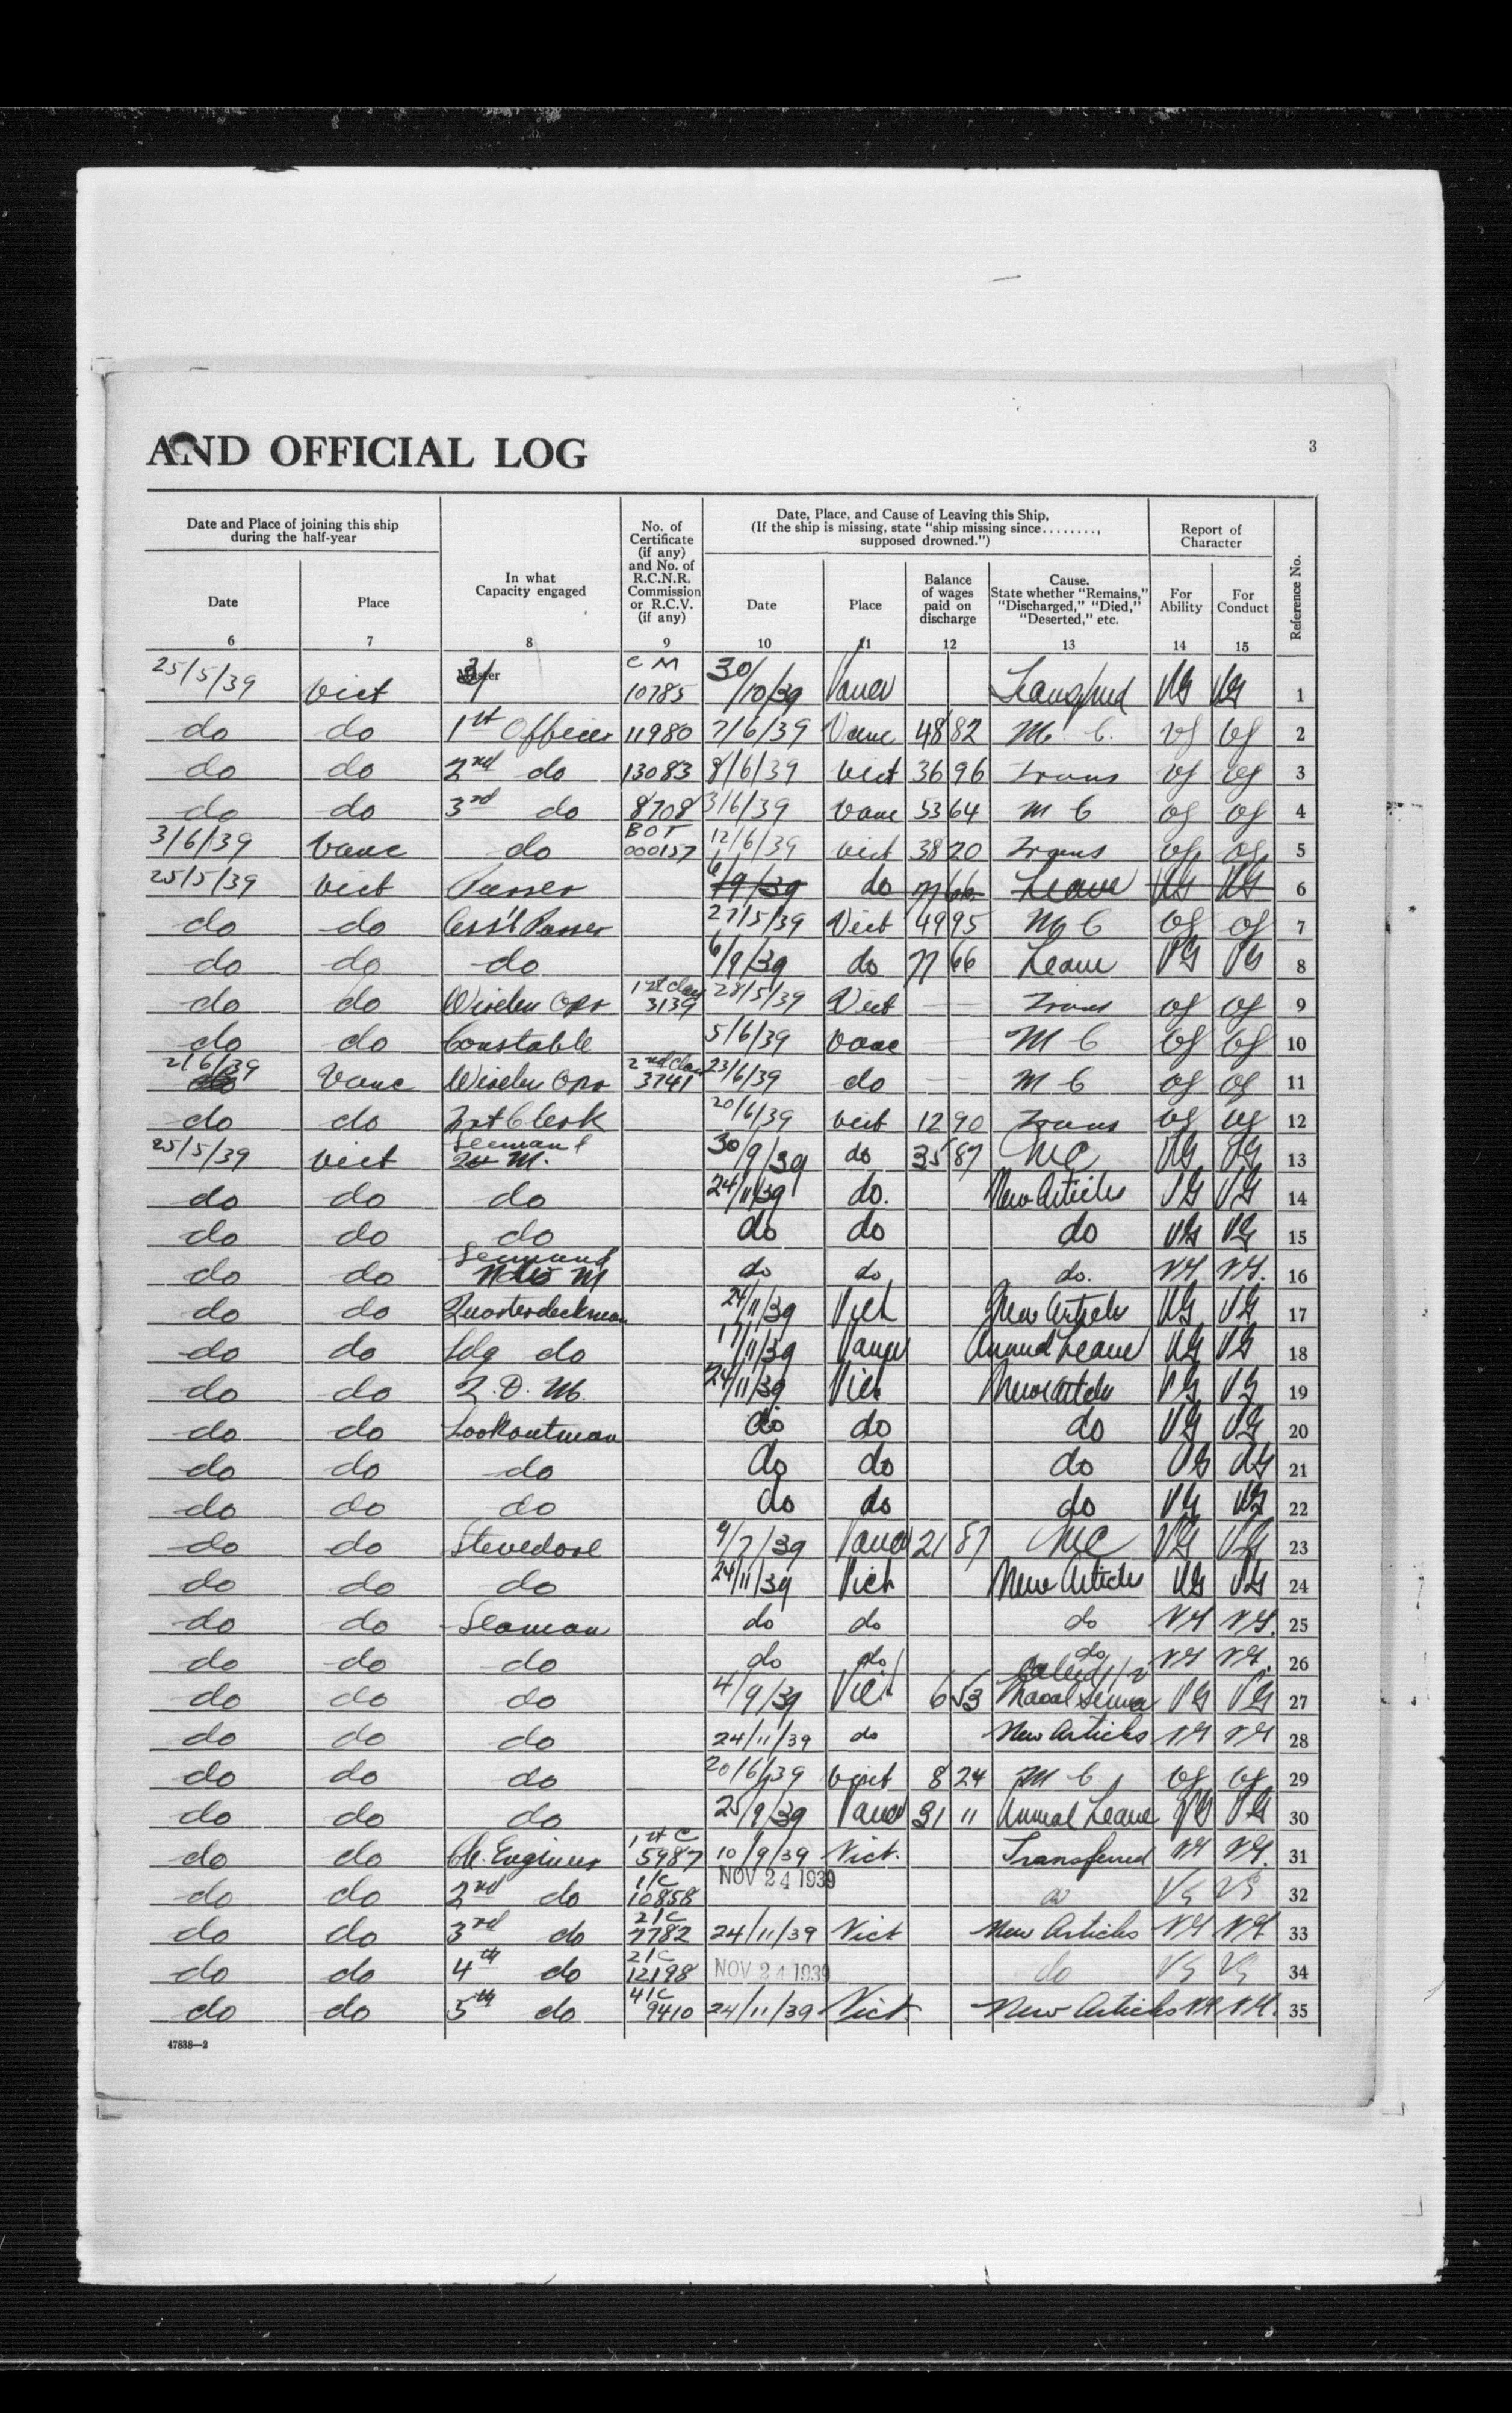 AND OFFICIAL LOG
3
Date and Place of joining this ship
during the half-year
In what
Capacity engaged
No. of
Certificate
(if any)
and No. of
R.C.N.R.
Commission
or R.C.V.
(if any)
Date, Place, and Cause of Leaving this Ship,
(If the ship is missing, state "ship missing since........,
supposed drowned.")
Report of
Character
Reference No.
Date
Place
Date
Place
Balance
of wages
paid on
discharge
Cause.
State whether "Remains,"
"Discharged," "Died,"
"Deserted," etc.
For
Ability
For
Conduct
6 7 8 9 10 11 12 13 14 15
25/5/39 Vict Master C M 10785 30/10/39 Vanc Transferred VG VG 1
do do 1st Officer 11980 7/6/39 Vanc 48 82 M C. VG VG 2
do do 2nd do 13083 8/6/39 Vict 36 96 Trans VG VG 3
do do 3rd do 8708 3/6/39 Vanc 53 64 M C VG VG 4
3/6/39 Vanc do BOT 000157 12/6/39 Vict 38 20 Trans VG VG 5
25/5/39 Vict Purser 6/9/39 do 77 66 Leave VG VG 6
do do Ass't Purser 27/5/39 Vict 49 95 M C VG VG 7
do do do 6/9/39 do 77 66 Leave VG VG 8
do do Wireless Opr 1st Class 3139 28/5/39 Vict — — Trans VG VG 9
do do Constable 5/6/39 Vanc — — M C VG VG 10
2/6/39 Vanc Wireless Opr 2nd Class 3741 23/6/39 do — — M C VG VG 11
do do Frt Clerk 20/6/39 Vict 12 90 Trans VG VG 12
25/5/39 Vict Seaman & Q M. 30/9/39 do 35 87 MC VG VG 13
do do do 24/11/39 do. New Articles VG VG 14
do do do do do do VG VG 15
do do Seaman & M do do do. VG VG. 16
do do Quarterdeckman 24/11/39 Vict New Articles VG VG 17
do do Ldg do 17/11/39 Vanc Annual Leave VG VG 18
do do Q. D. M. 24/11/39 Vict New Articles VG VG 19
do do Lookoutman do do do VG VG 20
do do do do do do VG VG 21
do do do do do do VG VG 22
do do Stevedore 9/7/39 Vanc 21 87 MC VG VG 23
do do do 24/11/39 Vict New Articles VG VG 24
do do Seaman do do do VG VG. 25
do do do do do do VG VG. 26
do do do 4/9/39 Vict 6 53 Naval Service VG VG 27
do do do 24/11/39 do New Articles VG VG 28
do do do 20/6/39 Vict 8 24 M C VG VG 29
do do do 25/9/39 Vanc 31 11 Annual Leave VG VG 30
do do Ch. Engineer 1st C 5987 10/9/39 Vict. Transferred VG VG. 31
do do 2nd do 1/C 10858 NOV 24 1939 do VG VG 32
do do 3rd do 2/C 7782 24/11/39 Vict New Articles VG VG 33
do do 4th do 2/C 12198 NOV 24 1939 do VG VG 34
do do 5th do 4/C 9410 24/11/39 Vict. New Articles VG VG. 35
47838—2